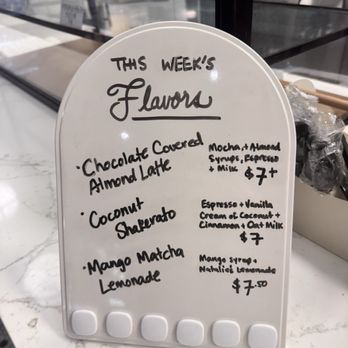 THIS WEEK'S
Flavors
· Chocolate Covered
Almond Latte
Mocha, + Almond
Syrups, Espresso
+ Milk $7+
· Coconut
Shakerato
Espresso + Vanilla
Cream of Coconut +
Cinnamon + Oat Milk
$7
· Mango Matcha
Lemonade
Mango Syrup +
Natalie's Lemonade
$7.50